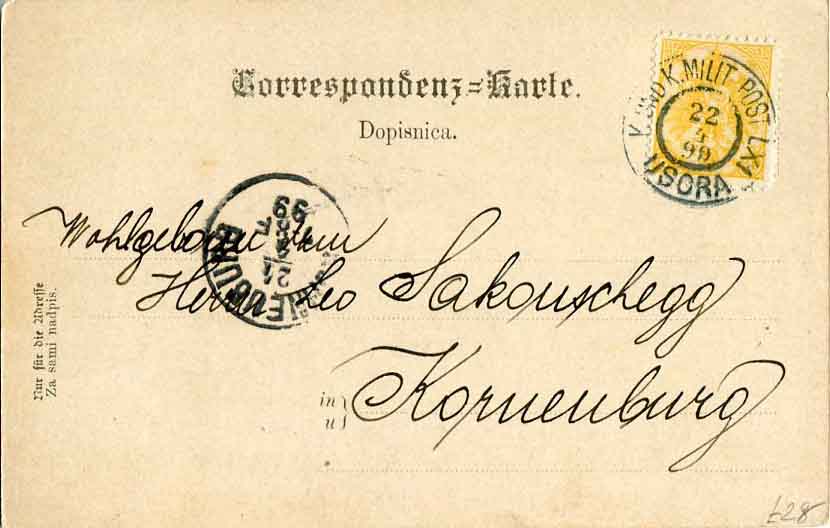 Correspondenz=Karte.
Dopisnica.
K. UND K. MILIT. POST LXI
22
4
99
USORA
99
Wohlgeboren dem
Herrn Leo Sakouschegg
in
u
Korneuburg
Nur für die Adresse
Za sami nadpis.
£28